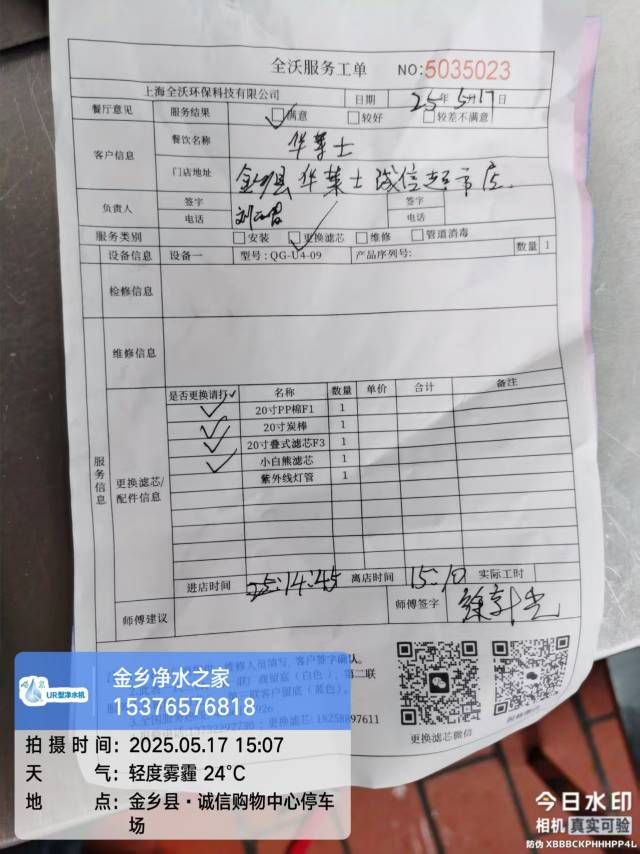 全沃服务工单 NO:5035023
上海全沃环保科技有限公司 日期 25年5月17日
餐厅意见 服务结果 ☑满意 ☐较好 ☐较差不满意
客户信息 餐饮名称 华莱士
门店地址 金乡县华莱士诚信超市店
负责人 签字 签字
电话 电话
服务类别 ☐安装 ☑更换滤芯 ☐维修 ☐管道消毒
设备信息 设备一 型号:QG-U4-09 产品序列号: 数量 1
检修信息
维修信息
服务信息
更换滤芯/配件信息
是否更换请打✓ 名称 数量 单价 合计 备注
✓ 20寸PP棉F1 1
✓ 20寸炭棒 1
✓ 20寸叠式滤芯F3 1
✓ 小白熊滤芯 1
紫外线灯管 1
进店时间 25:14:45 离店时间 15:10 实际工时
师傅建议 师傅签字
维修人员填写,客户签字确认。
(白色)、第二联
客户留底(蓝色)。
更换滤芯:18258897611
更换滤芯微信
UR型净水机
金乡净水之家
15376576818
拍摄时间:2025.05.17 15:07
天气:轻度雾霾 24°C
地点:金乡县·诚信购物中心停车场
今日水印
相机 真实可验
防伪 XBBBCKPHHHPP4L